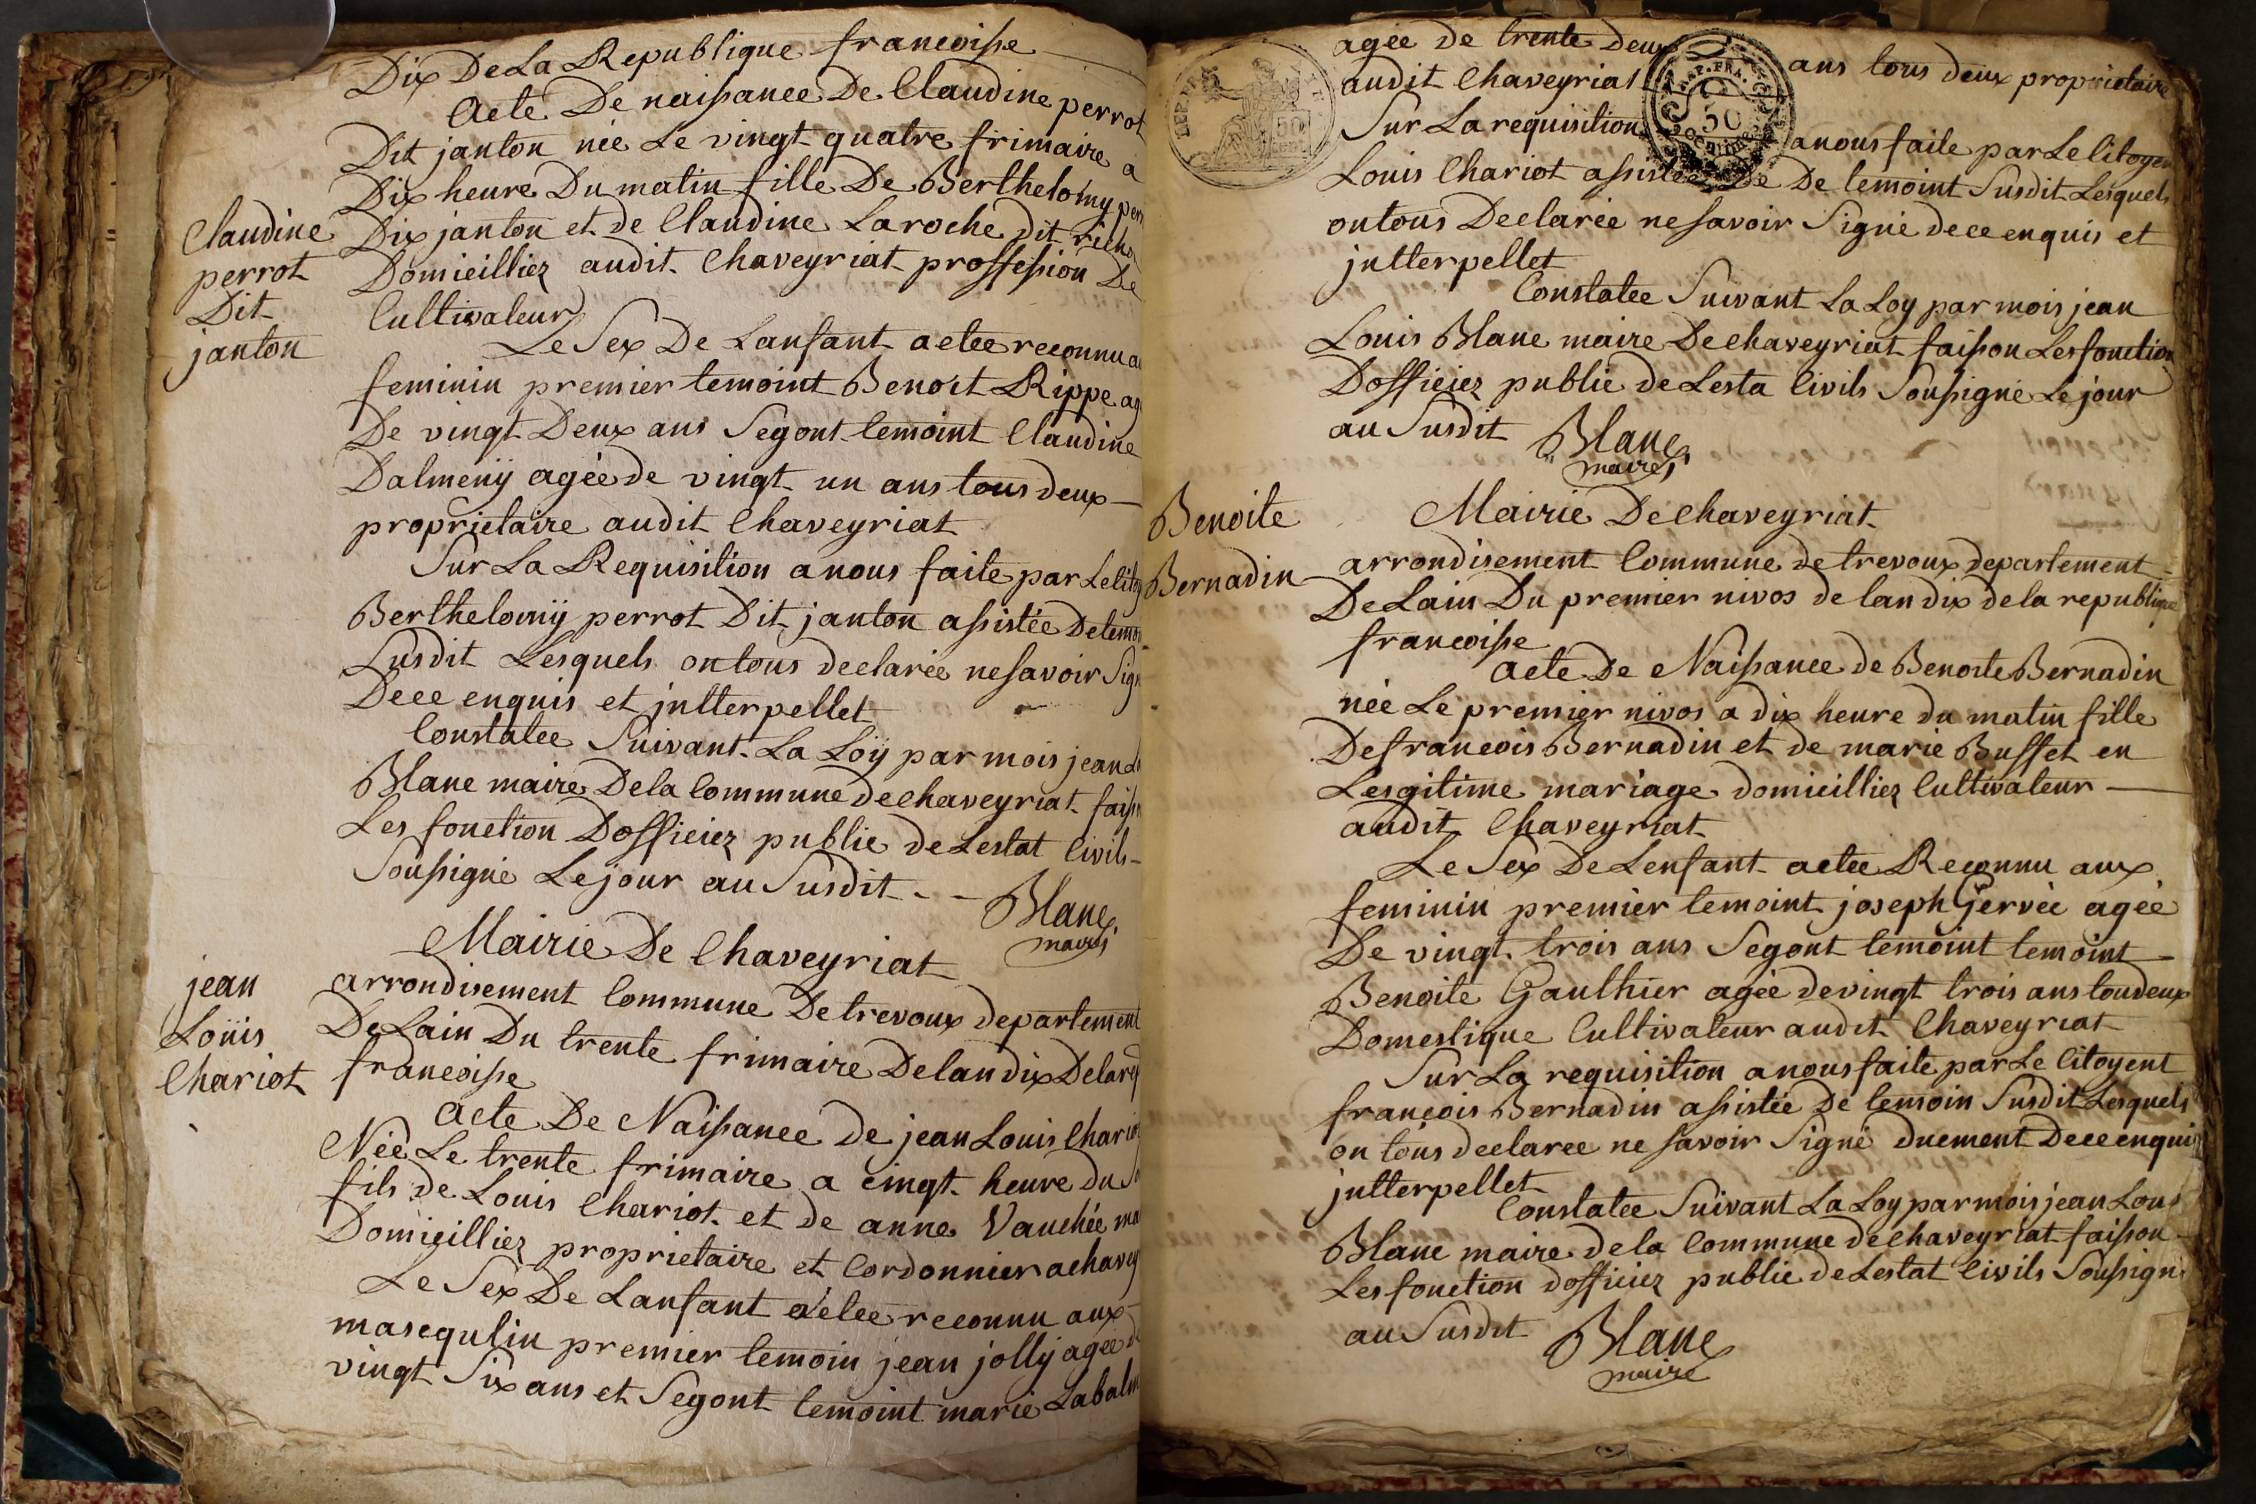 Dix De La Republique francoisse
Acte De naissance De Claudine perrot
Dit janton née Le vingt quatre frimaire a
Dix heure Du matin fille De Berthelomy per
Dix janton et de Claudine Laroche dit
Domicilliez audit Chaveyriat proffession De
Cultivateur
Claudine
perrot
Dit
janton
Le Sex De Lanfant a etee reconnu a
feminin premier temoint Benoit Rippe ag
De vingt Deux ans Segont temoint Claudine
Dalmeny agée de vingt un ans tous deux
proprietaire audit Chaveyriat
Sur La Requisition a nous faite par Le Cito
Berthelomy perrot Dit janton assistée De temo
Susdit Lesquels on tous declarée ne savoir Sign
Dece enquis et jntterpellet
Constatee Suivant La Loÿ par mois jean L
Blanc maire De la Commune De chaveyriat faiss
Les fonction Dofficiez public de Lestat Civils
Soussigné Le jour au Susdit
Blanc
maire
Mairie De Chaveyriat
jean
Loüis
Chariot
arrondisement Commune De trevoux departement
De Lain Du trente frimaire De lan dix De la rep
francoisse
Acte De Naissance de jean Louis Chariot
Née Le trente frimaire a cinqt heure Du S
fils de Louis Chariot et de anne Vauchée ma
Domicilliez proprietaire et Cordonnier a chavey
Le Sex De Lanfant a etee reconnu aux
masequlin premier temoin jean jolly agée d
vingt Six ans et Segont temoint marie Labalm
agée de trente deux ans tous deux proprietaire
audit Chaveyriat
Sur La requisition a nous faite par Le Citoyen
Louis Chariot assistée De De temoint Susdit Lesquels
on tous Declarée ne savoir Signé de ce enquis et
jntterpellet
REP. FRA.
50
Constatee Suivant La Loy par mois jean
Louis Blanc maire De chaveyriat faisson Les fonction
Dofficiez public de Lesta Civils Soussigné Le jour
au Susdit
Blanc
maire
Benoite
Bernadin
Mairie De Chaveyriat
arrondisement Commune de trevoux departement
De Lain Du premier nivos de lan dix de la republique
francoisse
Acte De Naissance de Benoite Bernadin
née Le premier nivos a dix heure du matin fille
De francois Bernadin et de marie Buffet en
Lesgitime mariage domicilliez Cultivateur
audit Chaveyriat
Le Sex De Lenfant a etee Reconnu aux
feminin premier temoint joseph Gervée agée
De vingt trois ans Segont temoint temoint
Benoite Gaulthier agée de vingt trois ans tou deux
Domestique Cultivateur audit Chaveyriat
Sur La requisition a nous faite par Le Citoyent
francois Bernadin assistée De temoin Susdit Lesquels
on tous declaree ne savoir Signé duement De ce enquis
jntterpellet
Constatee Suivant La Loy par mois jean Louis
Blanc maire de la Commune de chaveyriat faisson
Les fonction dofficiez public de Lestat Civils Soussigné
au Susdit
Blanc
maire